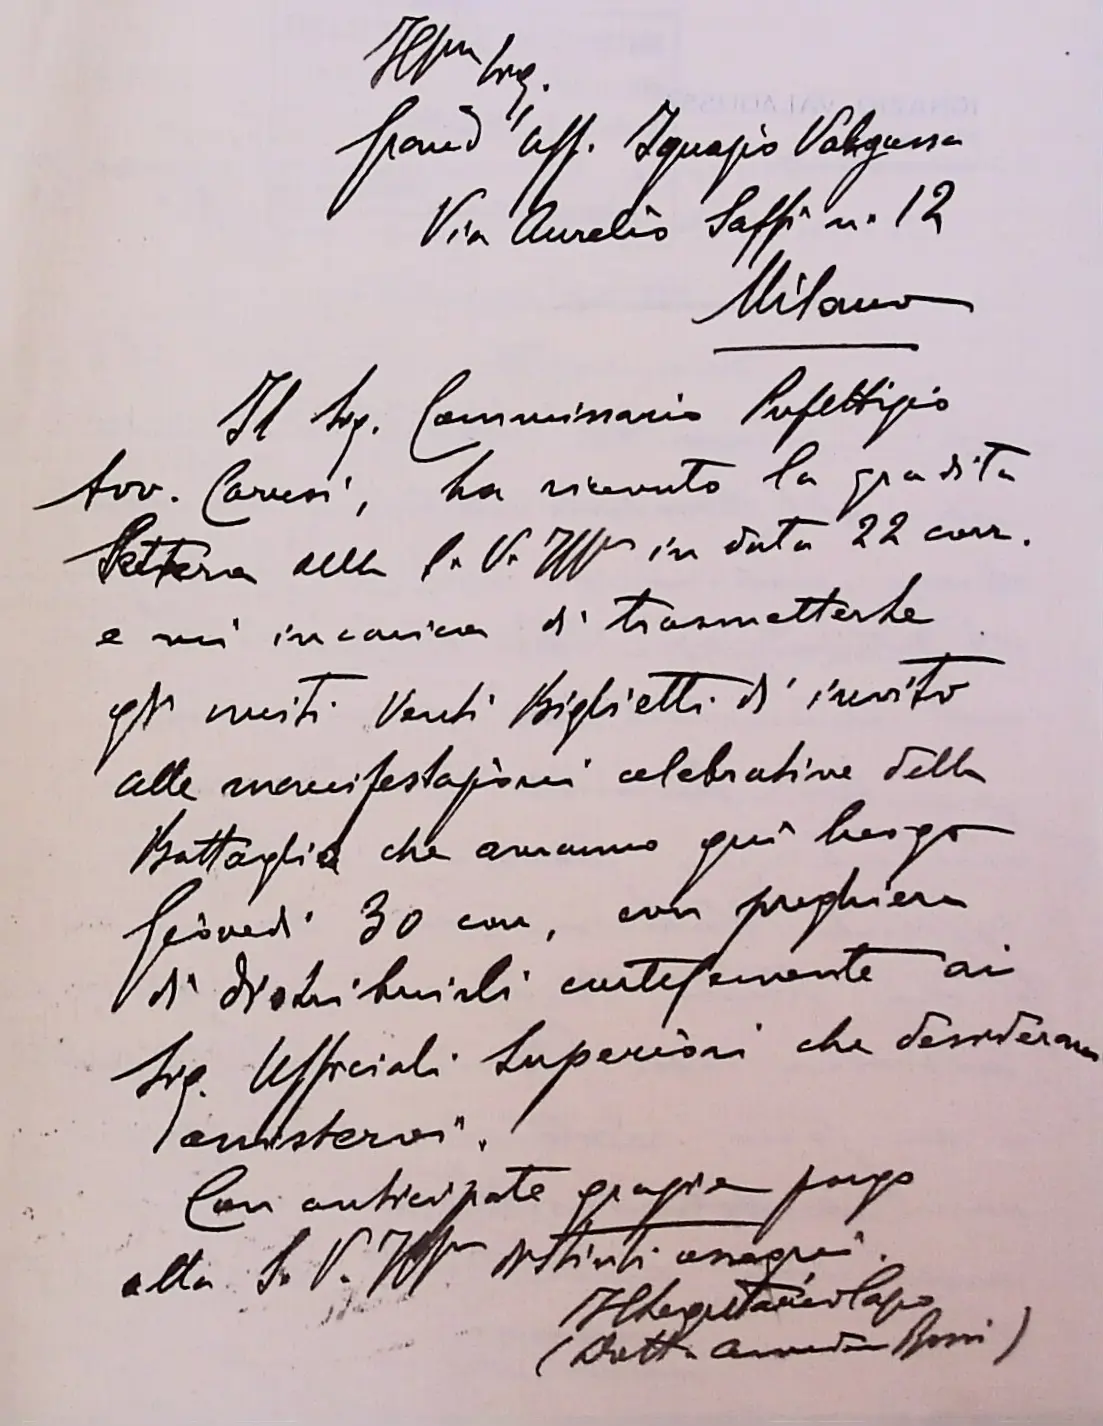 Ill.mo Sig.
Grand'Uff. Ignazio Valagussa
Via Aurelio Saffi n. 12
Milano
Il Sig. Commissario Prefettizio
Avv. Caruсsi, ha ricevuto la gradita
lettera della S. V. Ill.ma in data 22 corr.
e mi incarica di trasmetterLe
gli uniti Venti Biglietti di invito
alle manifestazioni celebrative della
Battaglia che avranno qui luogo
Giovedì 30 corr, con preghiera
di distribuirli cortesemente ai
Sig. Ufficiali Superiori che desiderano
assistervi".
Con anticipate grazie porgo
alla S. V. Ill.ma distinti ossequi.
Il Segretario Capo
(Dott. Amedeo Rossi)